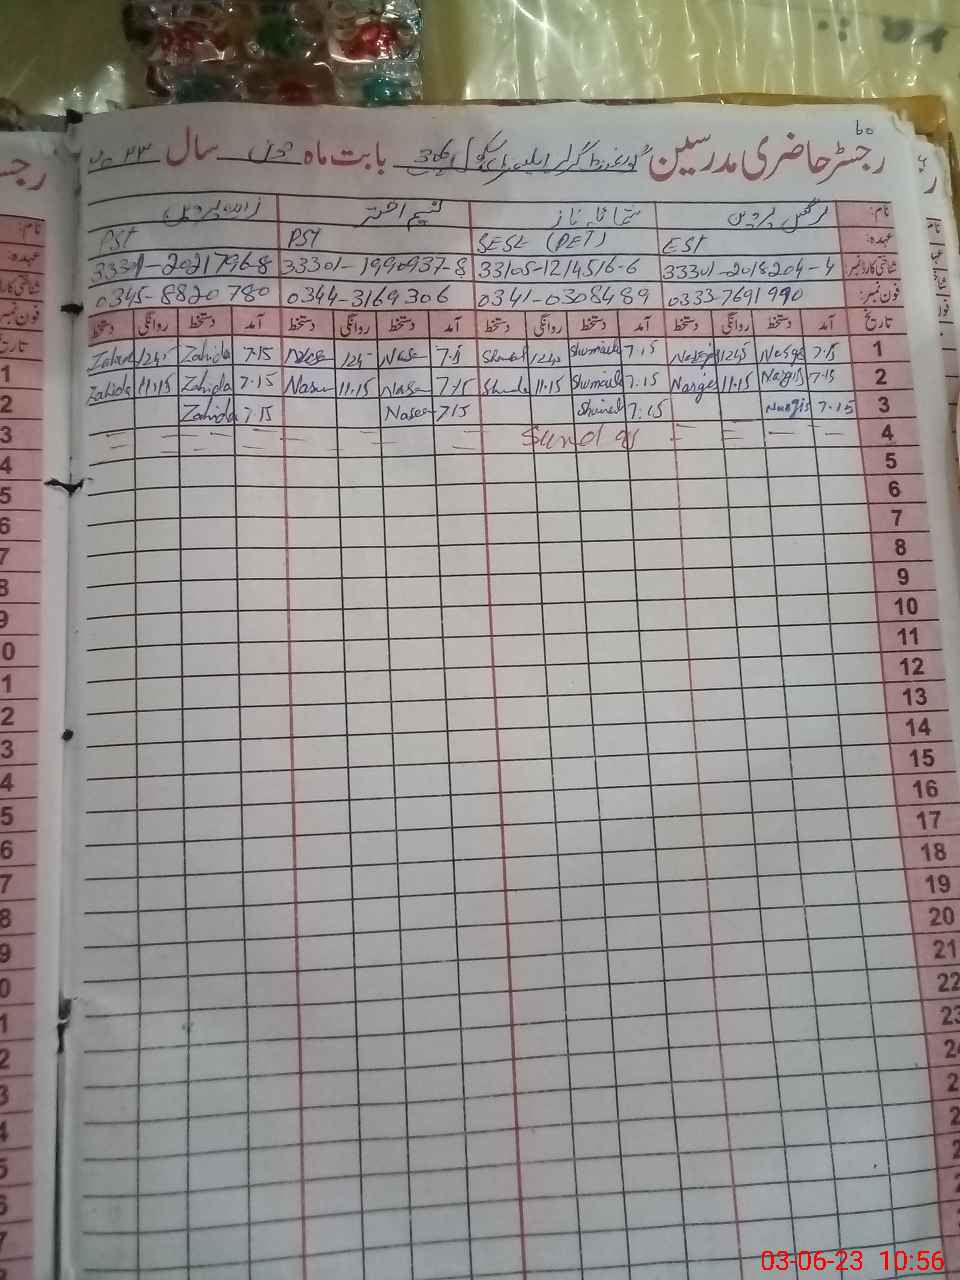 60
رجسٹر حاضری مدرسین گورنمنٹ گرلز ایلیمنٹری سکول 306 بابت ماہ جون سال ۲۳
نام: نرگس پروین شمائلہ ناز نسیم اختر زاہدہ پروین
عہدہ: EST SESE (PET) PST PST
شناختی کارڈ نمبر: 33301-2018204-4 33105-1214516-6 33301-1990937-8 33301-2021796-8
فون نمبر: 0333-7691990 0341-0308489 0344-3169306 0345-8820780
تاریخ آمد دستخط روانگی دستخط آمد دستخط روانگی دستخط آمد دستخط روانگی دستخط آمد دستخط روانگی دستخط
1 7.15 Nargis 1245 Nargis 7.15 Shumaila 1245 7.15 1245 7.15 Zahida 1245 Zahida
2 7.15 Nargis 11.15 Nargis 7.15 Shumaila 11.15 7.15 11.15 7.15 Zahida 11.15 Zahida
3 7.15 Nargis 7.15 7.15 7.15 Zahida
4 Sunday
5
6
7
8
9
10
11
12
13
14
15
16
17
18
19
20
21
22
23
03-06-23 10:56